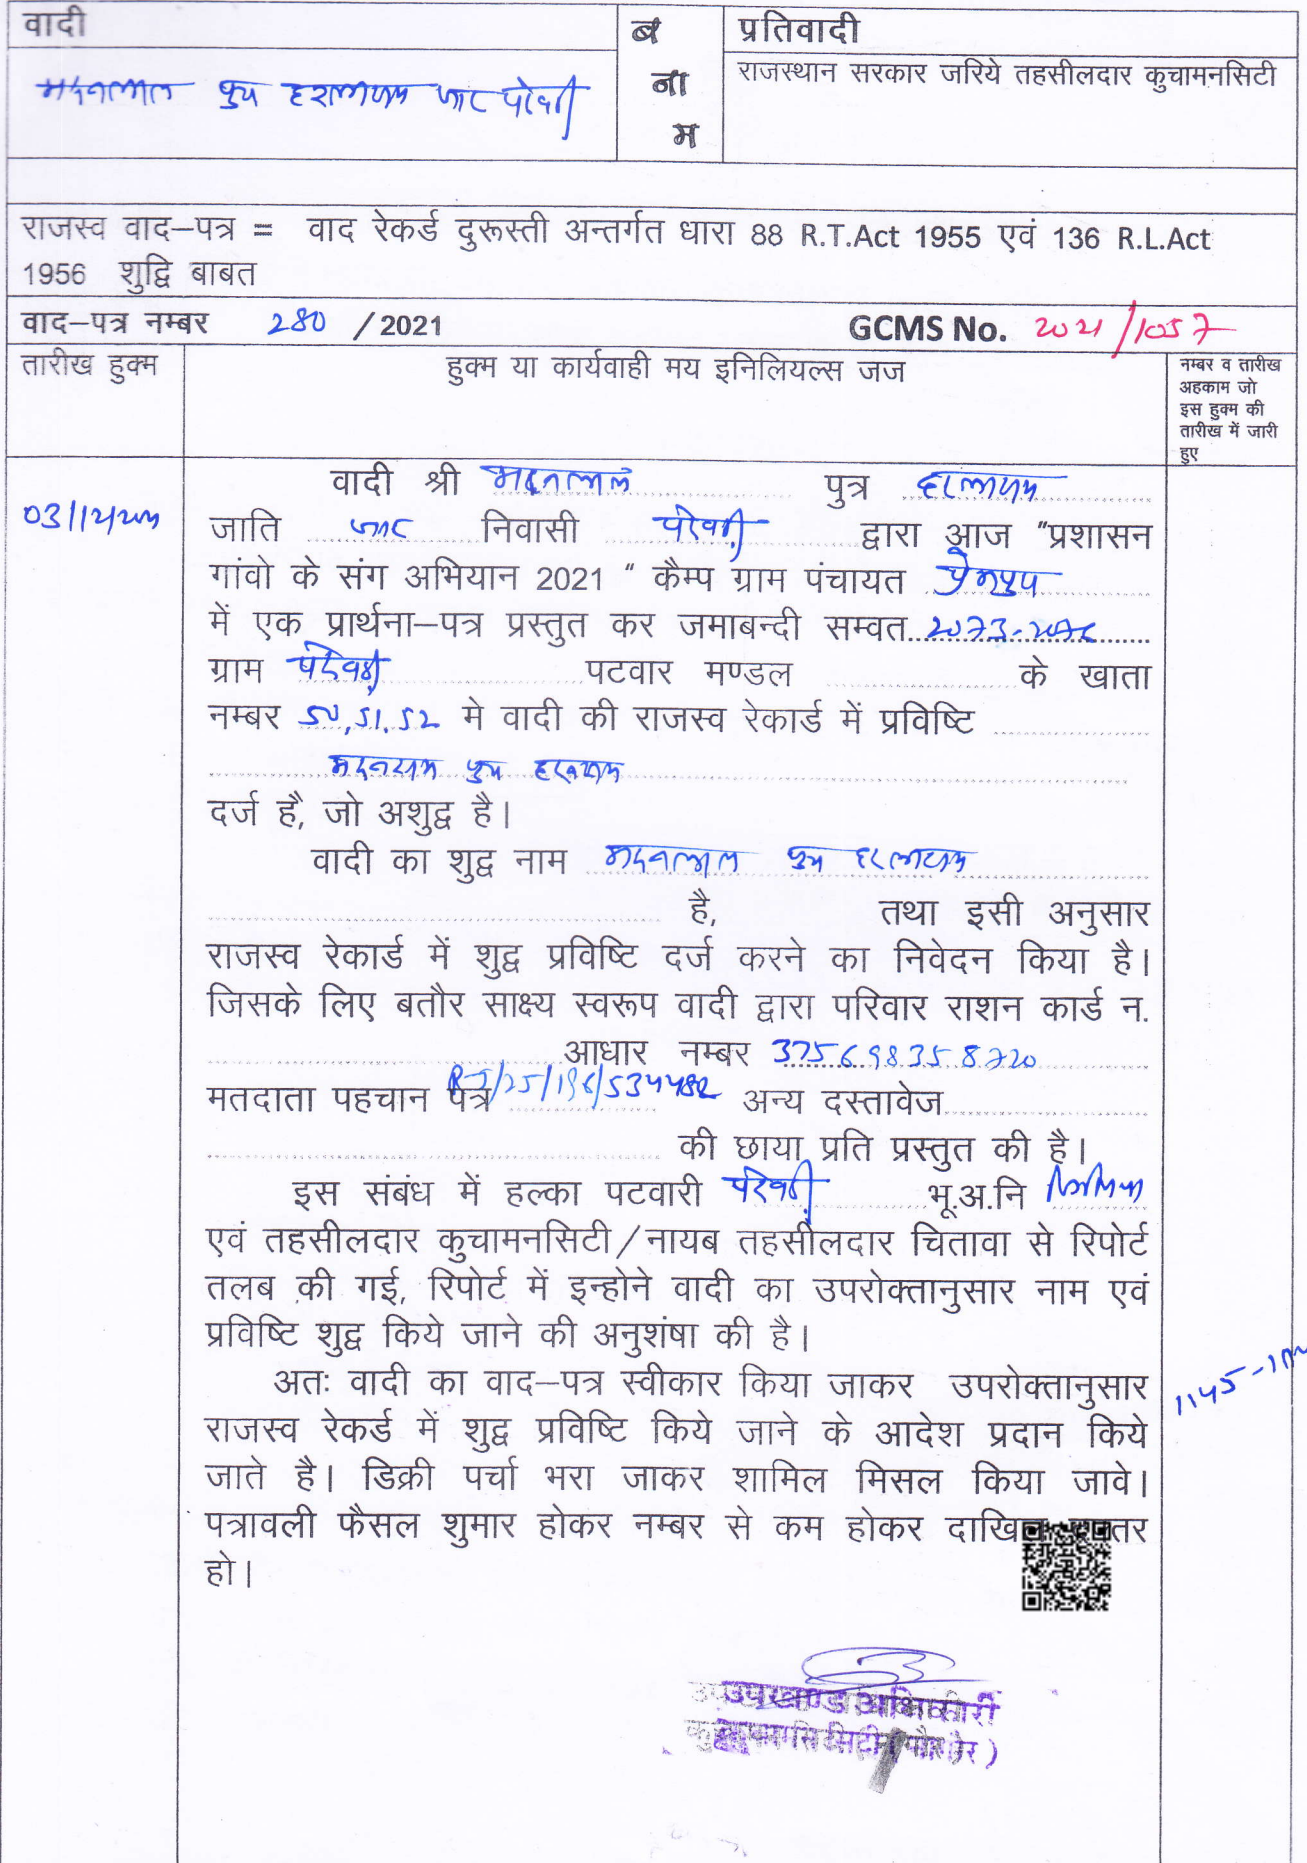 वादी
ब
ना
म
प्रतिवादी
मदनलाल पुत्र हरलाराम जाट परेवड़ी
राजस्थान सरकार जरिये तहसीलदार कुचामनसिटी
राजस्व वाद–पत्र = वाद रेकर्ड दुरूस्ती अन्तर्गत धारा 88 R.T.Act 1955 एवं 136 R.L.Act
1956 शुद्वि बाबत
वाद–पत्र नम्बर 280 / 2021 GCMS No. 2021/1057
तारीख हुक्म
हुक्म या कार्यवाही मय इनिलियल्स जज
नम्बर व तारीख
अहकाम जो
इस हुक्म की
तारीख में जारी
हुए
वादी श्री मदनलाल पुत्र हरलाराम
जाति जाट निवासी परेवड़ी द्वारा आज "प्रशासन
गांवो के संग अभियान 2021 " कैम्प ग्राम पंचायत
में एक प्रार्थना–पत्र प्रस्तुत कर जमाबन्दी सम्वत 2073-2076
ग्राम परेवड़ी पटवार मण्डल के खाता
नम्बर 50,51,52 मे वादी की राजस्व रेकार्ड में प्रविष्टि
मदनराम पुत्र
दर्ज है, जो अशुद्व है।
वादी का शुद्व नाम मदनलाल पुत्र हरलाराम
है, तथा इसी अनुसार
राजस्व रेकार्ड में शुद्व प्रविष्टि दर्ज करने का निवेदन किया है।
जिसके लिए बतौर साक्ष्य स्वरूप वादी द्वारा परिवार राशन कार्ड न.
आधार नम्बर 375698358720
मतदाता पहचान पत्र RJ/25/196/534482 अन्य दस्तावेज
की छाया प्रति प्रस्तुत की है।
इस संबंध में हल्का पटवारी परेवड़ी भू.अ.नि
एवं तहसीलदार कुचामनसिटी/नायब तहसीलदार चितावा से रिपोर्ट
तलब की गई, रिपोर्ट में इन्होने वादी का उपरोक्तानुसार नाम एवं
प्रविष्टि शुद्व किये जाने की अनुशंषा की है।
अतः वादी का वाद–पत्र स्वीकार किया जाकर उपरोक्तानुसार
राजस्व रेकर्ड में शुद्व प्रविष्टि किये जाने के आदेश प्रदान किये
जाते है। डिक्री पर्चा भरा जाकर शामिल मिसल किया जावे।
पत्रावली फैसल शुमार होकर नम्बर से कम होकर
हो।
उपखण्ड अधिकारी